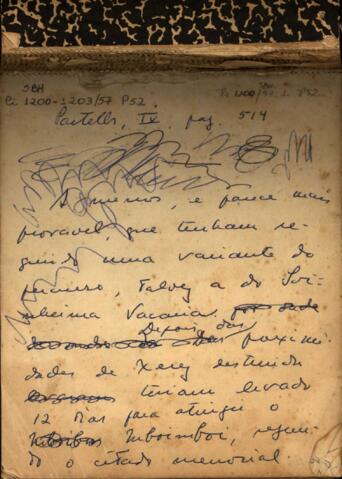 SBH
Pi 1200-1203/57 P52.
Pi 1200/57 P52
Pastells, IX, pag. 514
A menos, e parece mais
provavel, que tenham se-
guido uma variante do
primeiro, talvez a do Ivi-
nheima Vacaria.
Depois das proximi-
dades de Xerez destruida
teriam levado
12 dias para atingir o
Mboimboi, segun-
do o citado memorial.